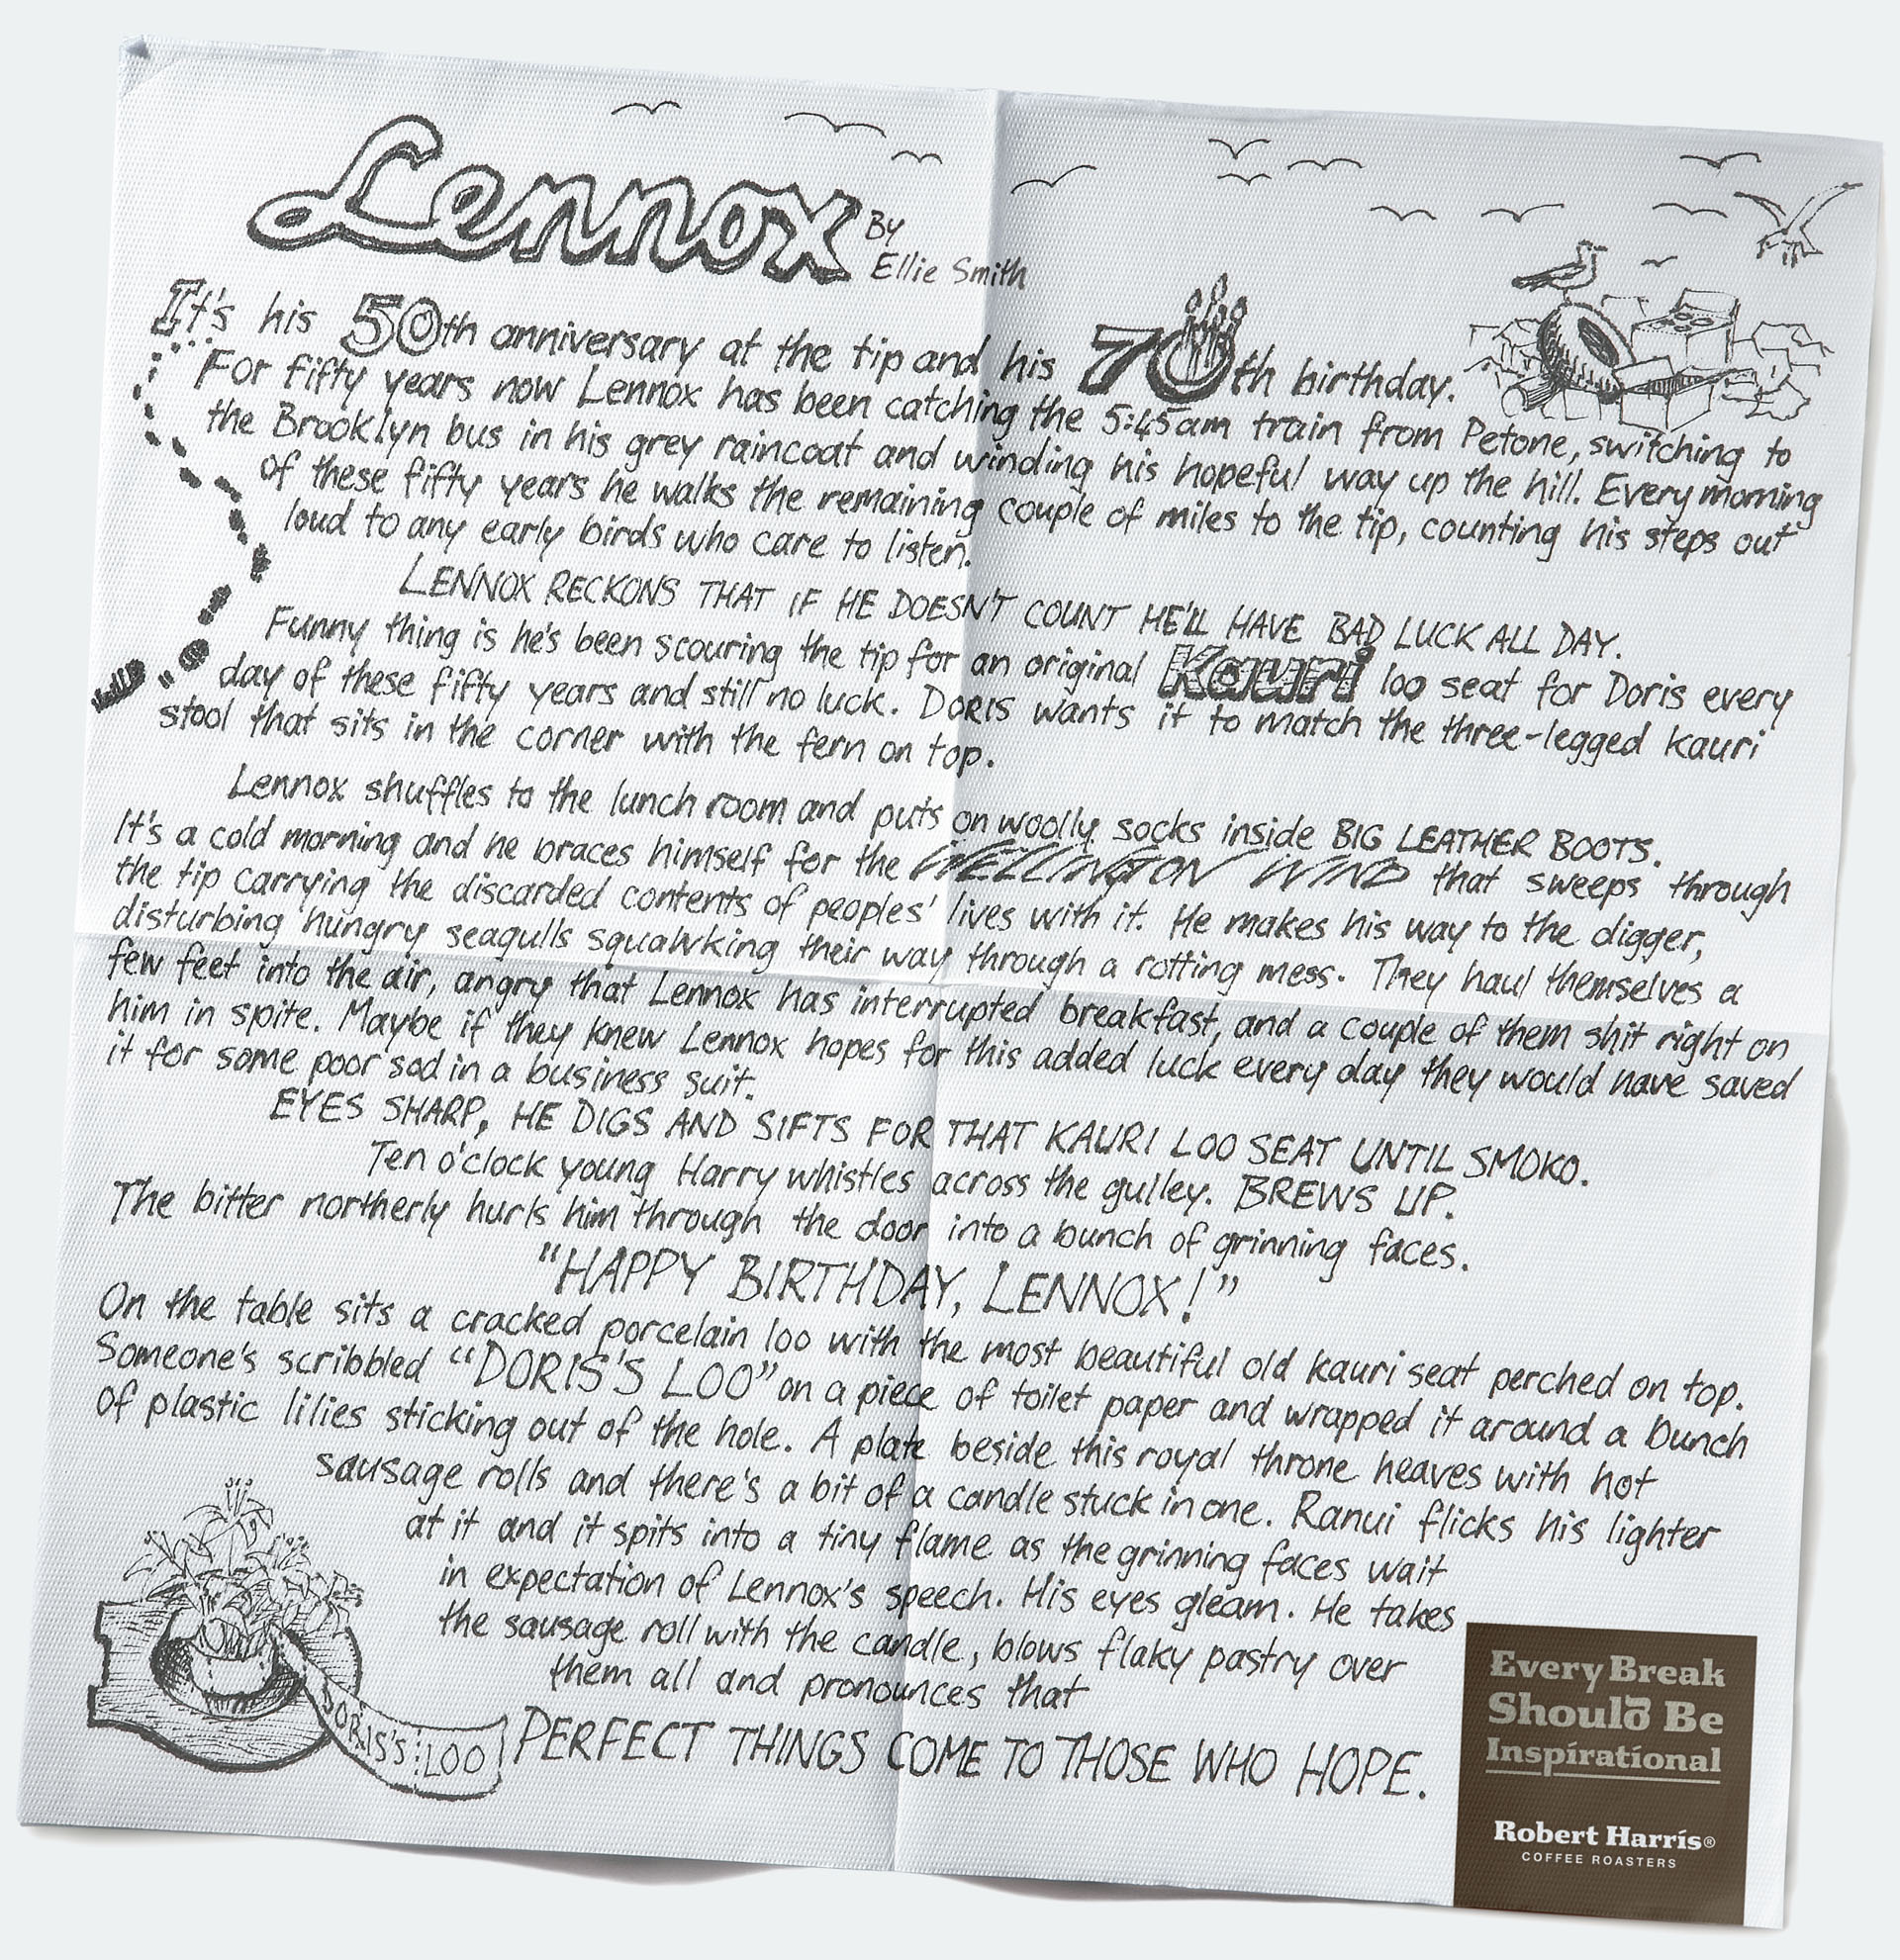 Lennox By
Ellie Smith
It's his 50th anniversary at the tip and his 70th birthday.
For fifty years now Lennox has been catching the 5:45am train from Petone, switching to
the Brooklyn bus in his grey raincoat and winding his hopeful way up the hill. Every morning
of these fifty years he walks the remaining couple of miles to the tip, counting his steps out
loud to any early birds who care to listen.
LENNOX RECKONS THAT IF HE DOESN'T COUNT HE'LL HAVE BAD LUCK ALL DAY.
Funny thing is he's been scouring the tip for an original Kauri loo seat for Doris every
day of these fifty years and still no luck. DORIS wants it to match the three-legged kauri
stool that sits in the corner with the fern on top.
Lennox shuffles to the lunch room and puts on woolly socks inside BIG LEATHER BOOTS.
It's a cold morning and he braces himself for the WELLINGTON WIND that sweeps through
the tip carrying the discarded contents of peoples' lives with it. He makes his way to the digger,
disturbing hungry seagulls squawking their way through a rotting mess. They haul themselves a
few feet into the air, angry that Lennox has interrupted breakfast, and a couple of them shit right on
him in spite. Maybe if they knew Lennox hopes for this added luck every day they would have saved
it for some poor sod in a business suit.
EYES SHARP, HE DIGS AND SIFTS FOR THAT KAURI LOO SEAT UNTIL SMOKO.
Ten o'clock young Harry whistles across the gulley. BREWS UP.
The bitter northerly hurls him through the door into a bunch of grinning faces.
"HAPPY BIRTHDAY, LENNOX!"
On the table sits a cracked porcelain loo with the most beautiful old kauri seat perched on top.
Someone's scribbled "DORIS'S LOO" on a piece of toilet paper and wrapped it around a bunch
of plastic lilies sticking out of the hole. A plate beside this royal throne heaves with hot
sausage rolls and there's a bit of a candle stuck in one. Ranui flicks his lighter
at it and it spits into a tiny flame as the grinning faces wait
in expectation of Lennox's speech. His eyes gleam. He takes
the sausage roll with the candle, blows flaky pastry over
them all and pronounces that
PERFECT THINGS COME TO THOSE WHO HOPE.
DORIS'S LOO
Every Break
Should Be
Inspirational
Robert Harris®
COFFEE ROASTERS